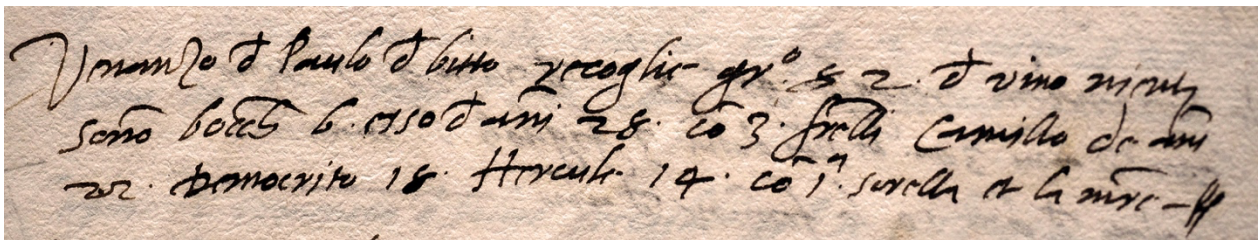 Venanzo d Paulo d bitto recoglie gr.º s 2. d vino nienti
sonno bocch 6. esso d anni 28. cō 3. frelli Camillo de anni
22. Democrito 18. Hercule 14. cō 1ª. sorella et la mre